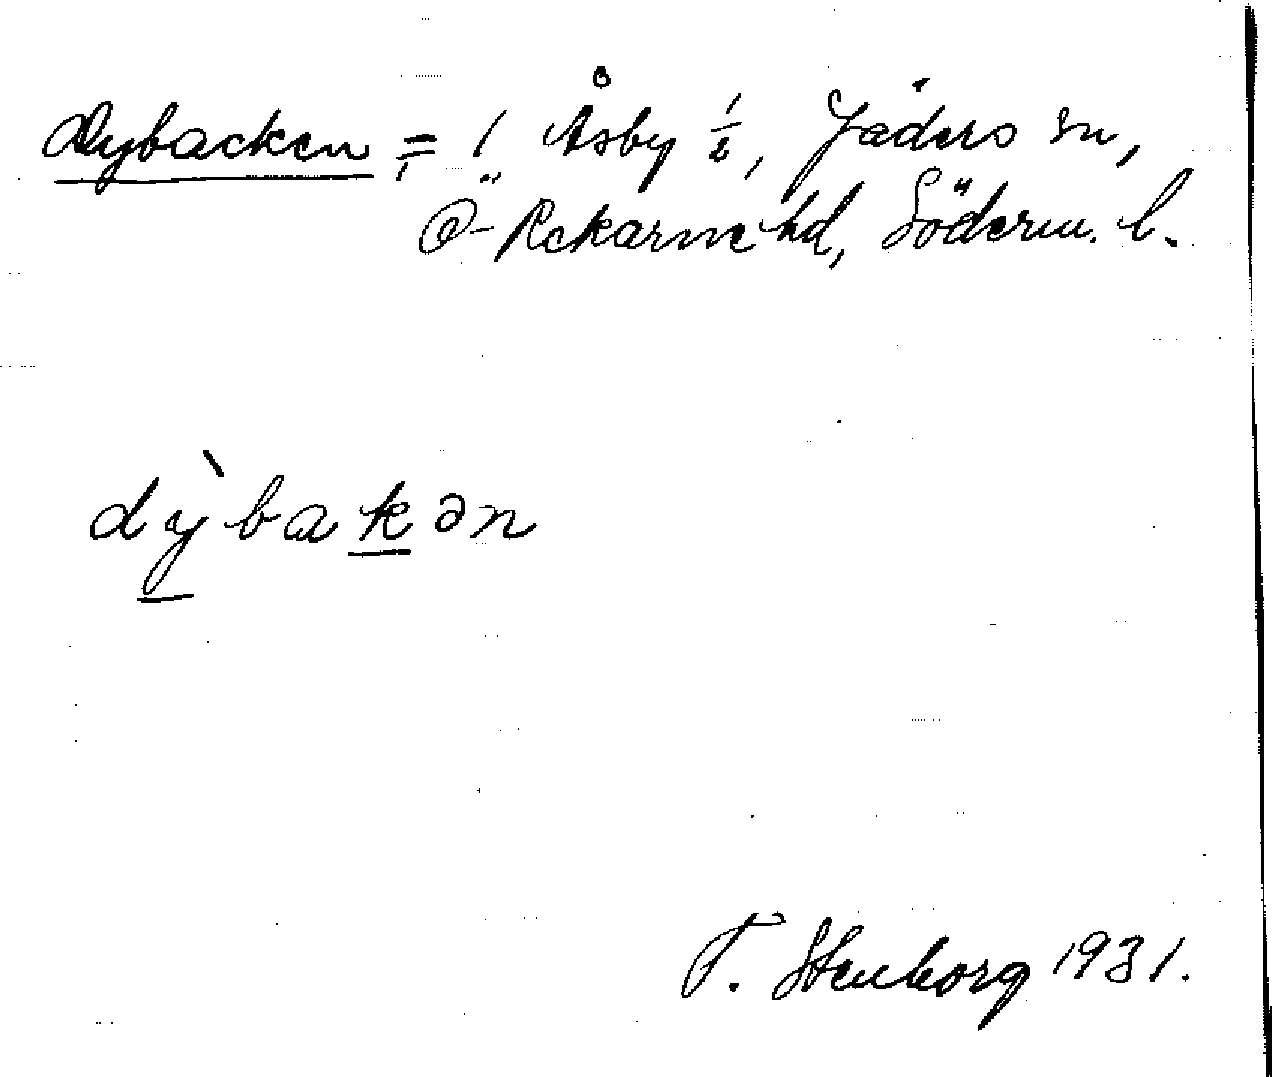 Dybacken = i Åsby ½, Jäders sn,
Ö-Rekarne hd, Söderm. l.
dỳ̠bak̠ən
T. Stenborg 1931.